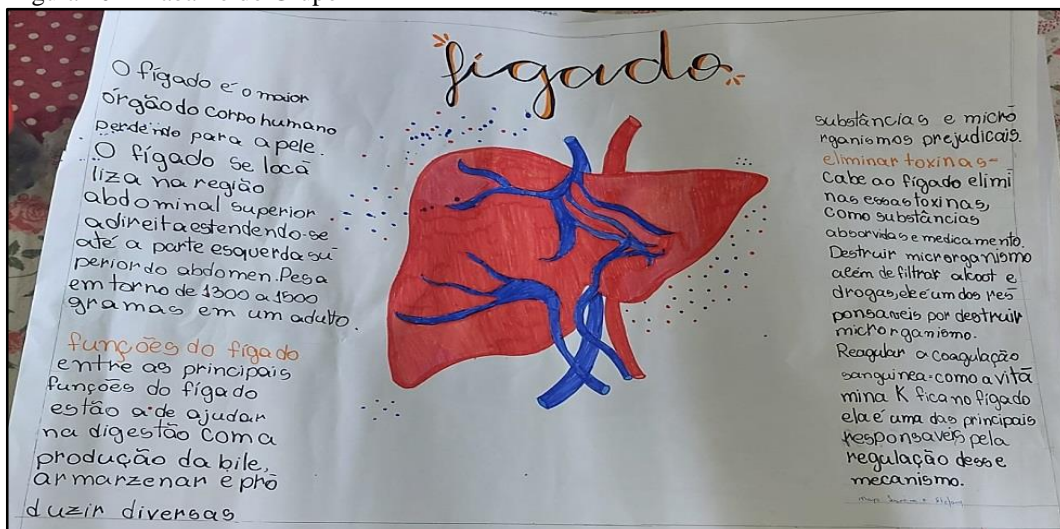 fígado
O fígado é o maior
órgão do corpo humano
perdendo para a pele.
O fígado se loca
liza na região
abdominal superior
a direita estendendo-se
até a parte esquerda su
perior do abdomen. Pesa
em torno de 1300 a 1500
gramas em um adulto.
funções do fígado
entre as principais
funções do fígado
estão a de ajudar
na digestão com a
produção da bile,
armarzenar e pro
duzir diversas
substâncias e micro
rganismos prejudicais.
eliminar toxinas-
Cabe ao fígado elimi
nas essas toxinas,
como substâncias
absorvidas e medicamento.
Destruir microrganismo
além de filtrar alcool e
drogas, ele é um dos res
ponsaveis por destruir
microrganismo.
Reagular a coagulação
sanguinea-como a vita
mina K fica no fígado
ela é uma das principais
responsaveis pela
regulação desse
mecanismo.